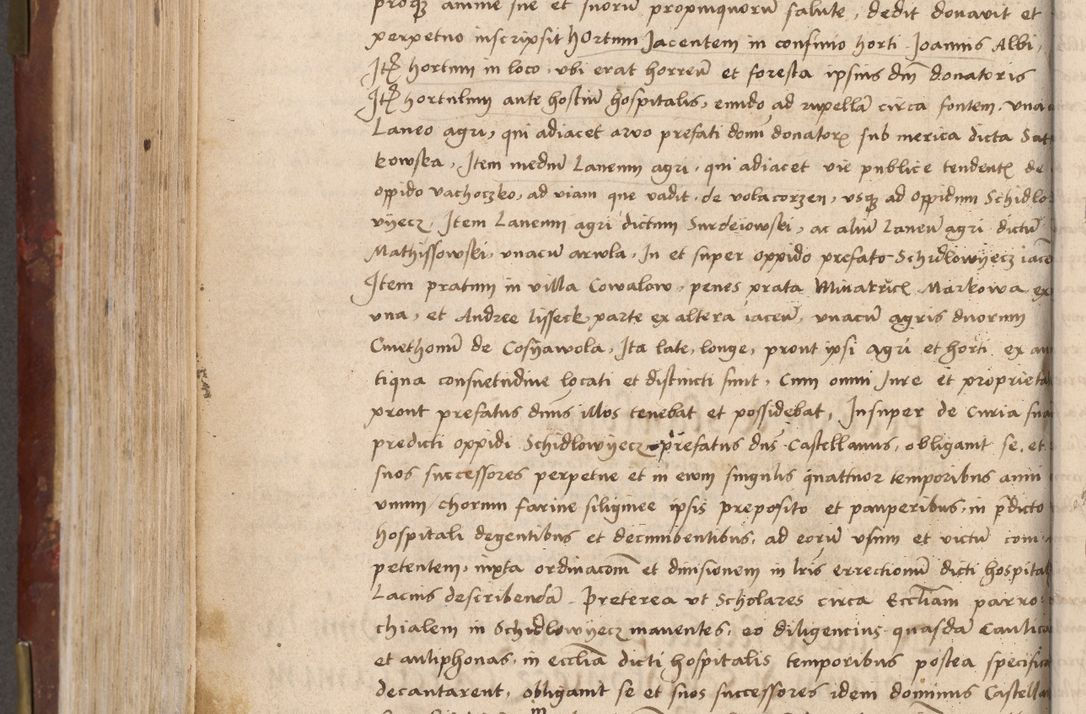 proq₃ anime sue et suorū propinquorū salute, dedit donavit et
perpetuo inscripsit hortum Jacentem in confinio horti Joannis Albi,
Itꝫ hortum in loco, vbi erat horreū et foresta ipsius dni donatoris
Itꝫ hortulum ante hostiū hospitalis, eundo ad rupellā circa fontem, vna
Laneo agri, qui adiacet arvo prefati domi donatorꝫ sub merica dicta Sat
kowska, Item mediū Laneum agri, qui adiacet vie publice tendentꝫ de
oppido vachoczko, ad viam que vadit, de volacorzen, vsq₃ ad oppidum Schidlo
vyecz, Item Laneum agri dictum Surdeiowski, ac aliū Laneū agri dictū
Mathissowski, unacū arvola, In et super oppido prefato Schidlowyecz iacē
Item pratum in villa Cowalow, penes prata Markowa ex
vna, et Andree lisseck parte ex altera iaceū, unacū agris duorum
Cmethonū de Cosnawola, Ita late, longe, prout ipsi agri et horti ex an
tiqua consuetudine locati et distincti sunt, Cum omni Jure et proprieta
prout prefatus dnus illos tenebat et possidebat, Insuper de Curia sua
predicti oppidi Schidlowyecz prefatus dns Castellanus, obligauit se, et
suos successores perpetue et in evum singulis quattuor temporibus anni
vnum chorum farine siliginee ipsis preposito et pauperibus, in pdicto
hospitali degentibus et decumbentibus, ad eorū vsum et victū com
petentem, iuxta ordinacom et diuisionem in lris errectionū dicti hospital
Lacius describendā. Preterea vt Scholares circa Eccliam parro
chialem in Schidlowyecz manentes, eo diligencius quasdā Cantica
et antiphonas, in ecclia dicti hospitalis temporibus postea specifica
decantarent, obligauit se et suos successores idem dominus Castella